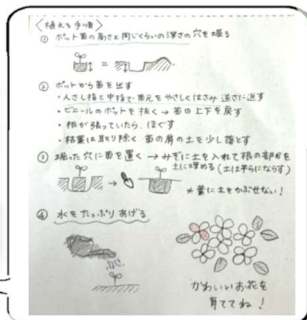 〈植える手順〉
① ポット苗の高さと同じくらいの深さの穴を掘る
② ポットから苗を出す
・人さし指と中指で苗元をやさしくはさみ逆さに返す
・ビニールのポットを抜く→苗の上下を戻す
・根が張っていたら、ほぐす
・枯葉は取り除く 苗の肩の土を少し落とす
③ 掘った穴に苗を置く→みぞに土を入れて根の部分を
土に埋める(土は平らにならす)
*葉に土をかぶせない!
④ 水をたっぷりあげる
かわいいお花を
育ててね!